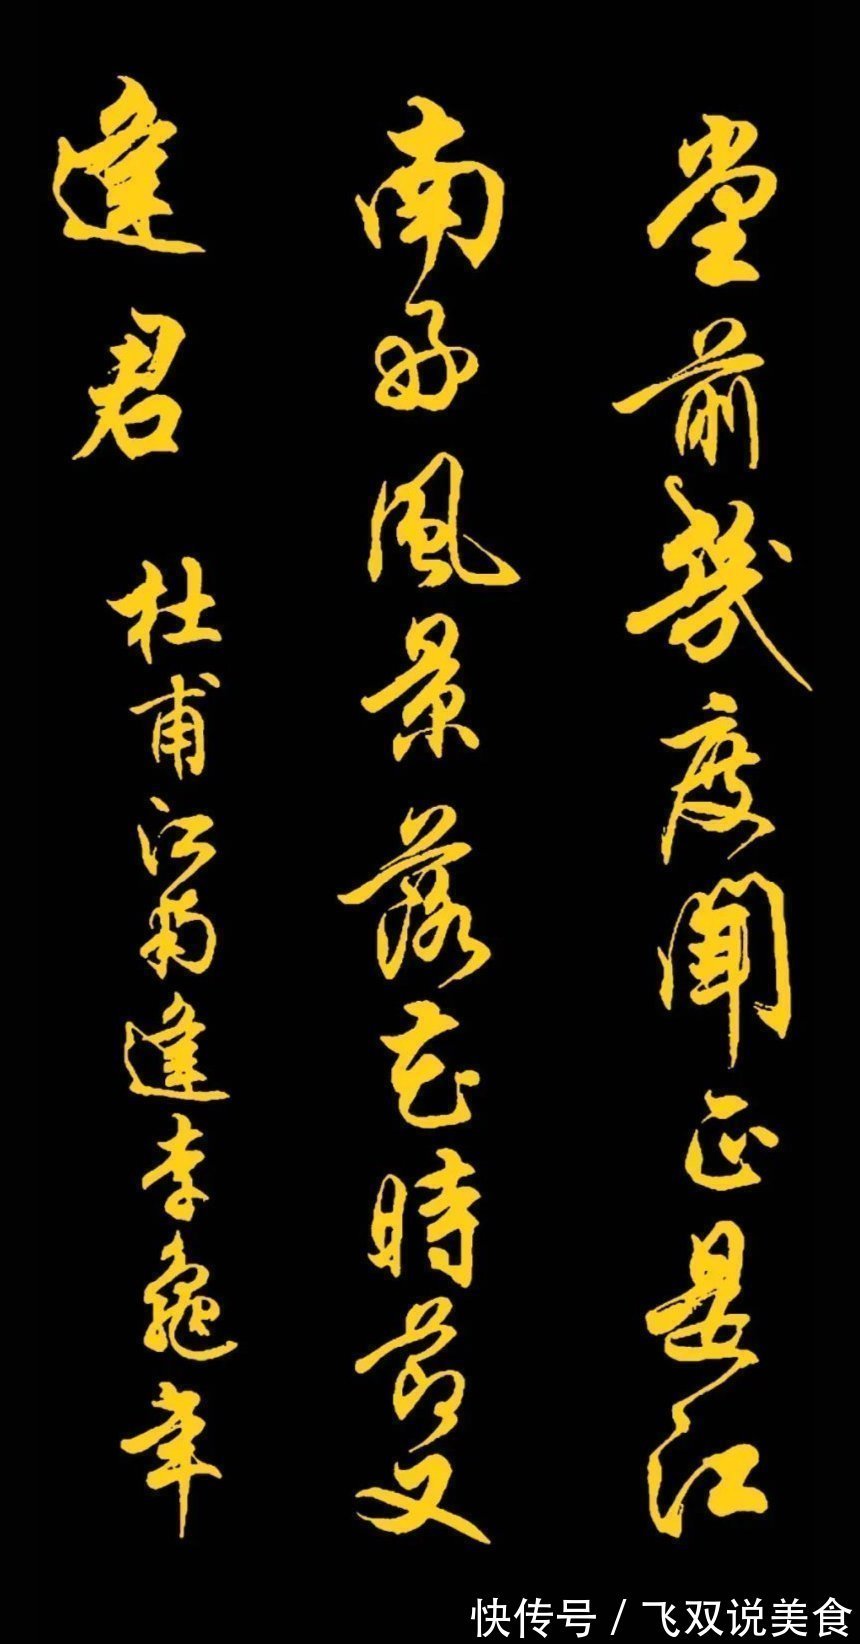 堂前幾度聞正是江
南好風景落花時節又
逢君
杜甫江南逢李龜年
快传号/飞双说美食